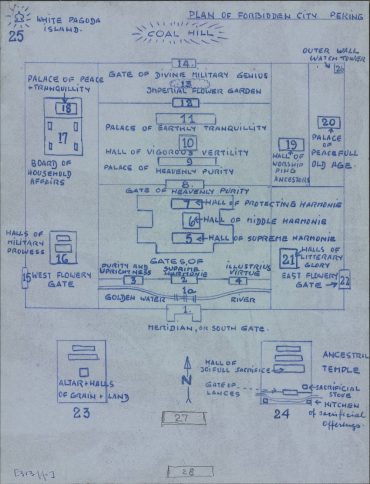 PLAN OF FORBIDDEN CITY PEKING
WHITE PAGODA
ISLAND.
25
COAL HILL
OUTER WALL
WATCH TOWER
26
14
GATE OF DIVINE MILITARY GENIUS
13
IMPERIAL FLOWER GARDEN
12
11
PALACE OF EARTHLY TRANQUILLITY
10
HALL OF VIGOROUS VERTILITY
9
PALACE OF
HEAVENLY PURITY
8
GATE OF HEAVENLY PURITY
PALACE OF PEACE
+ TRANQUILLITY
18
17
BOARD OF
HOUSEHOLD
AFFAIRS
20
PALACE
OF
PEACEFULL
OLD AGE.
19
HALL OF
WORSHIP
PING
ANCESTORS
7
HALL OF PROTECTING HARMONIE
6
HALL OF MIDDLE HARMONIE
5
HALL OF SUPREME HARMONIE
HALLS OF
MILITARY
PROWESS
16
21
HALLS OF
LITTERARY
GLORY
WEST FLOWERY
GATE
EAST FLOWERY
GATE
22
GATES OF
PURITY AND
UPRIGHTNESS
SUPREME
HARMONIE
ILLUSTRIUS
VIRTUE
3
2
4
1a
GOLDEN WATER
RIVER
1.
MERIDIAN, OR SOUTH GATE.
ALTAR + HALLS
OF GRAIN + LAND
23
N
HALL OF
JOIFULL SACRIFICE
GATE OF
LANCES
ANCESTRAL
TEMPLE
SACRIFICIAL
STOVE
KITCHEN
of sacrificial
Offerings.
24
27
28